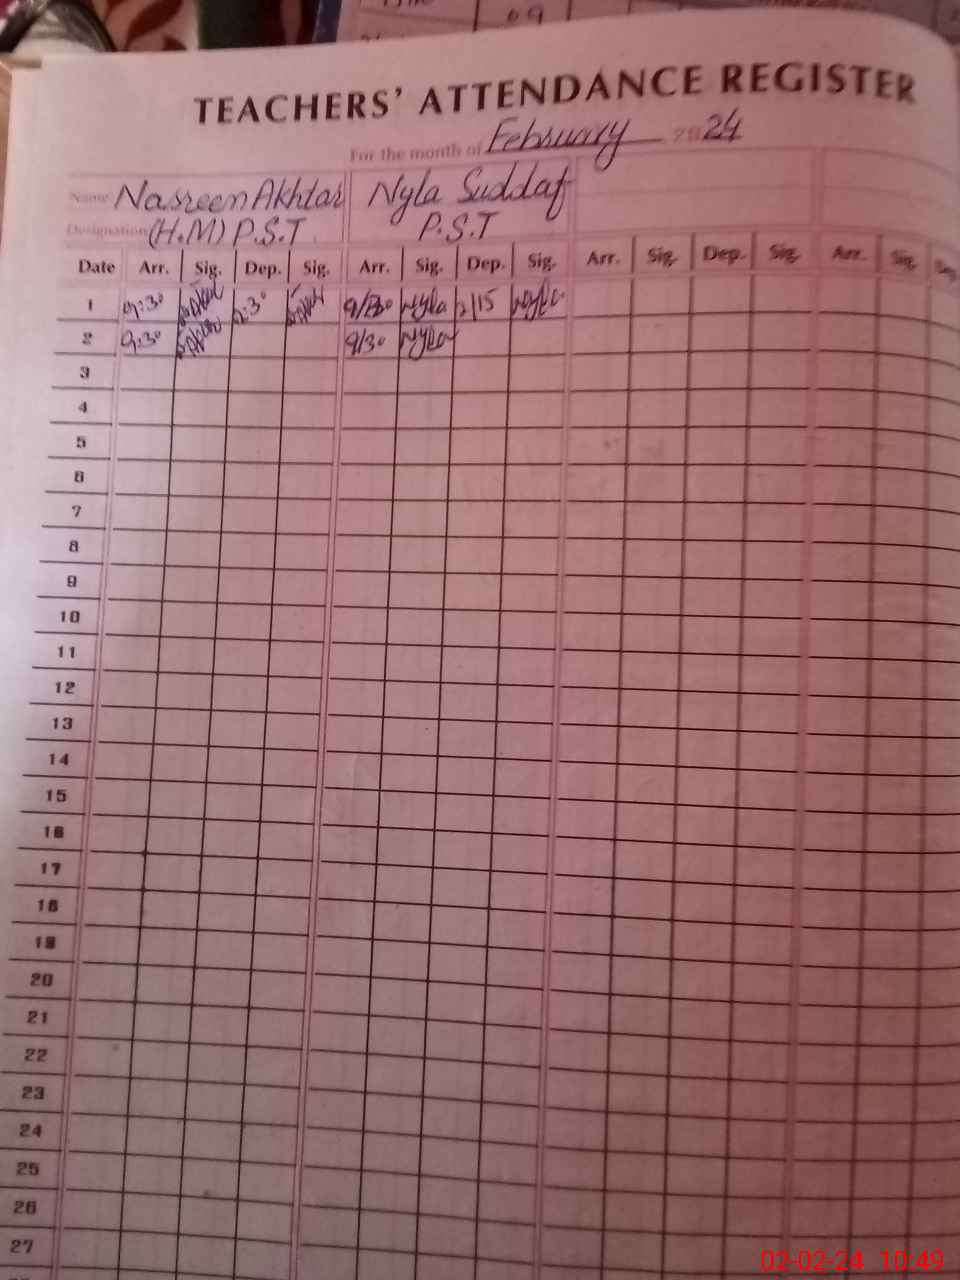 09
TEACHERS' ATTENDANCE REGISTER
For the month of February 2024
Name Nasreen Akhtar Nyla Suddaf
Designation (H.M) P.S.T P.S.T
Date Arr. Sig. Dep. Sig. Arr. Sig. Dep. Sig. Arr. Sig. Dep. Sig. Arr. Sig. Dep.
1 9:30 2:30 9/30 Nyla 2/15 Nyla
2 9:30 9/30 Nyla
3
4
5
6
7
8
9
10
11
12
13
14
15
16
17
18
19
20
21
22
23
24
25
26
27
02-02-24 10:49